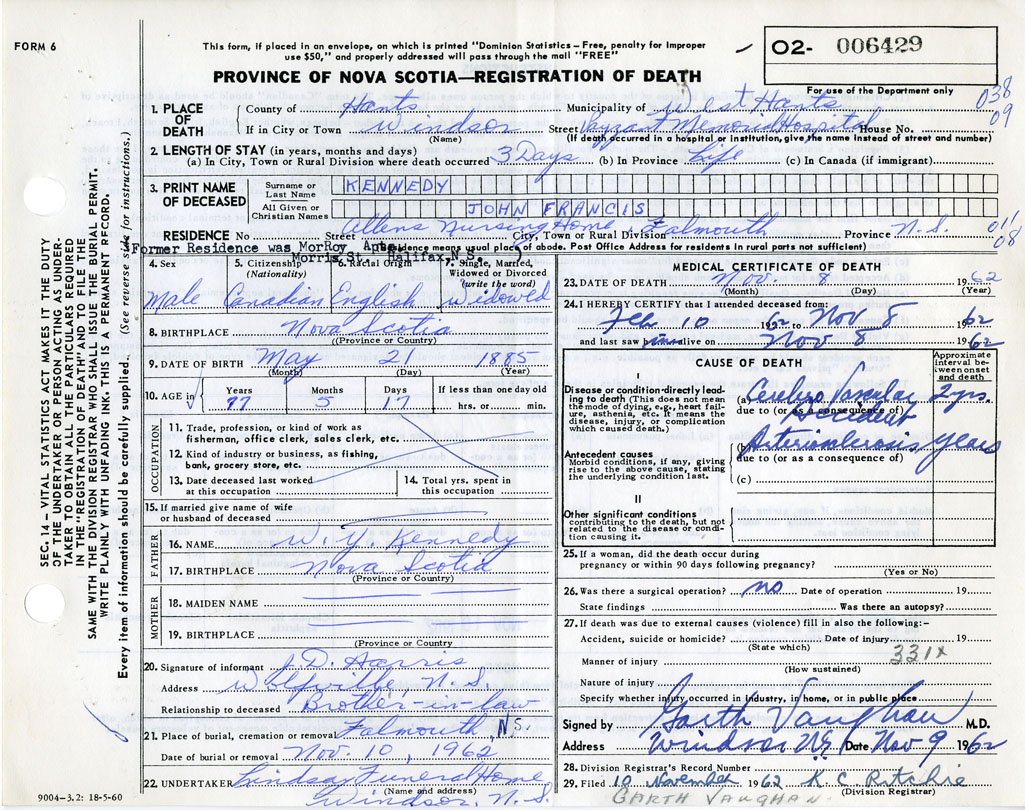 FORM 6
This form, if placed in an envelope, on which is printed "Dominion Statistics – Free, penalty for improper
use $50," and properly addressed will pass through the mail "FREE"
O2- 006429
PROVINCE OF NOVA SCOTIA—REGISTRATION OF DEATH
For use of the Department only
038
09
1. PLACE OF DEATH
County of Hants Municipality of West Hants
If in City or Town Windsor Street Payzant Memorial Hospital House No.
(Name) (If death occurred in a hospital or institution, give the name instead of street and number)
2. LENGTH OF STAY (in years, months and days)
(a) In City, Town or Rural Division where death occurred 3 Days (b) In Province Life (c) In Canada (if immigrant)
3. PRINT NAME OF DECEASED
Surname or Last Name KENNEDY
All Given or Christian Names JOHN FRANCIS
RESIDENCE No Street Allens Nursing Home City, Town or Rural Division Falmouth Province N.S. 011
08
Former Residence was MorRoy Apts. Residence means usual place of abode. Post Office Address for residents in rural parts not sufficient)
Morris St. Halifax, N.S.
4. Sex 5. Citizenship (Nationality) 6. Racial Origin 7. Single, Married, Widowed or Divorced (write the word)
Male Canadian English Widowed
8. BIRTHPLACE Nova Scotia
(Province or Country)
9. DATE OF BIRTH May 21 1885
(Month) (Day) (Year)
10. AGE in Years Months Days If less than one day old
77 5 17 hrs. or min.
OCCUPATION
11. Trade, profession, or kind of work as
fisherman, office clerk, sales clerk, etc.
12. Kind of industry or business, as fishing,
bank, grocery store, etc.
13. Date deceased last worked
at this occupation
14. Total yrs. spent in
this occupation
15. If married give name of wife
or husband of deceased
FATHER
16. NAME W. Y. Kennedy
17. BIRTHPLACE Nova Scotia
(Province or Country)
MOTHER
18. MAIDEN NAME
19. BIRTHPLACE
(Province or Country)
20. Signature of informant J. D. Harris
Address Wolfville, N.S.
Relationship to deceased Brother-in-law
21. Place of burial, cremation or removal Falmouth, N.S.
Date of burial or removal Nov. 10, 1962
22. UNDERTAKER Lindsay Funeral Home
(Name and address)
Windsor, N.S.
MEDICAL CERTIFICATE OF DEATH
23. DATE OF DEATH Nov. 8 1962
(Month) (Day) (Year)
24. I HEREBY CERTIFY that I attended deceased from:
Feb 10 1962 to Nov 8 1962
and last saw him alive on Nov 8 1962
CAUSE OF DEATH
Approximate interval between onset and death
I
Disease or condition directly leading to death (This does not mean
the mode of dying, e.g., heart failure, asthenia, etc. It means the
disease, injury, or complication
which caused death.)
(a) Cerebro Vascular Accident 2 yrs.
due to (or as a consequence of)
Antecedent causes
Morbid conditions, if any, giving
rise to the above cause, stating
the underlying condition last.
(b) Arteriosclerosis years
due to (or as a consequence of)
(c)
II
Other significant conditions
contributing to the death, but not
related to the disease or condition causing it.
25. If a woman, did the death occur during
pregnancy or within 90 days following pregnancy?
(Yes or No)
26. Was there a surgical operation? no Date of operation 19
State findings Was there an autopsy?
27. If death was due to external causes (violence) fill in also the following:-
Accident, suicide or homicide? Date of injury 19
(State which)
331x
Manner of injury
(How sustained)
Nature of injury
Specify whether injury occurred in industry, in home, or in public place
Signed by Garth Vaughan M.D.
Address Windsor NS Date Nov 9 1962
28. Division Registrar's Record Number
29. Filed 10 November 1962 K. C. Ritchie
(Division Registrar)
GARTH VAUGHAN
SEC. 14 – VITAL STATISTICS ACT MAKES IT THE DUTY
OF THE UNDERTAKER OR PERSON ACTING AS UNDERTAKER TO OBTAIN ALL THE PARTICULARS REQUIRED
IN THE "REGISTRATION OF DEATH" AND TO FILE THE
SAME WITH THE DIVISION REGISTRAR WHO SHALL ISSUE THE BURIAL PERMIT.
WRITE PLAINLY WITH UNFADING INK. THIS IS A PERMANENT RECORD.
Every item of information should be carefully supplied. (See reverse side for instructions.)
9004-3.2: 18-5-60